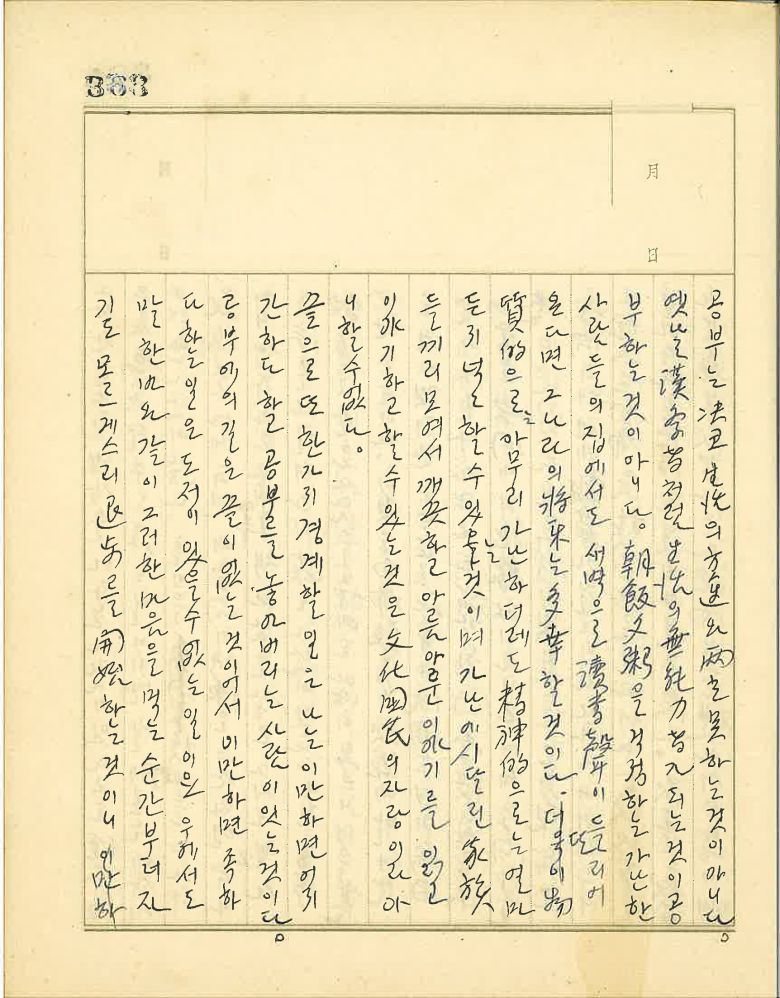 363
月
日
공부는 決코 生活의 方途와 兩立 못하는것이 아니다
옛날 漢學者처럼 生活의 無能力者가 되는것이 공
부하는 것이 아니다。朝飯夕粥을 걱정하는 가난한
사람들의 집에서도 새벽으로 讀書聲이 들리어
온다면 그나라의 將來는 多幸할것이다. 더욱이 物
質的으로는 아무리 가난하더레도 精神的으로는 얼마
든지 넉 할수있는것이며 가난에시달린 家族
들끼리 모여서 깨끗하고 아름다운 이야기를 읽고
이야기하고 할수있는것은 文化國民의 자랑이라 아
니할수없다。
끝으로 또한가지 경계할일은 나는이만하면 어지
간하다 하고 공부를 놓아버리는 사람이있는것이다
공부에의길은 끝이없는것이어서 이만하면 족하
다하는일은 도저이 있을수없는일이요 우에서도
말한바와같이 그러한 마음을먹는 순간부터 자
기도 모르게스리 退步를 開始하는것이니 이만하